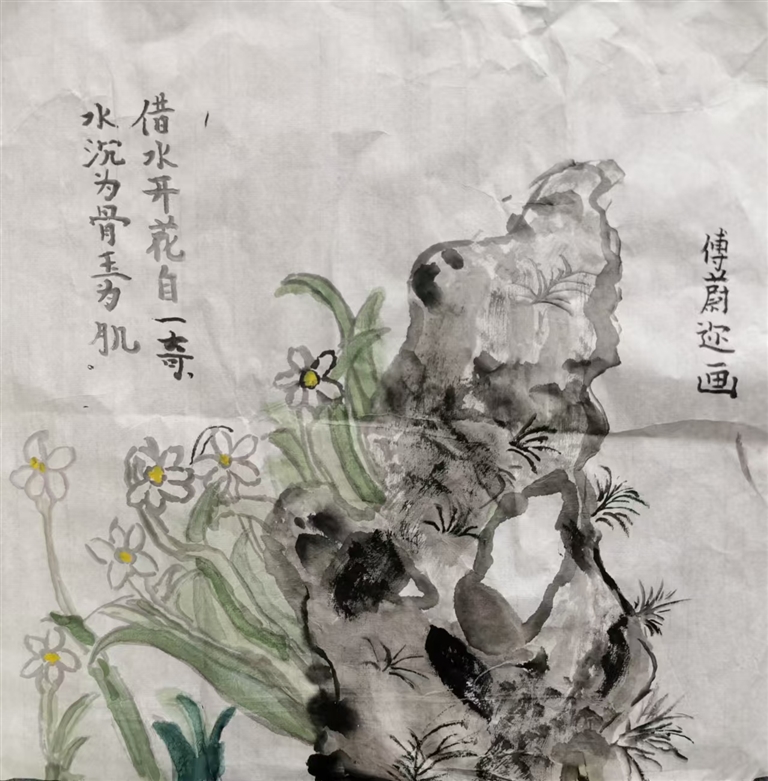 借水开花自一奇、
水沉为骨玉为肌。
傅蔚迩画